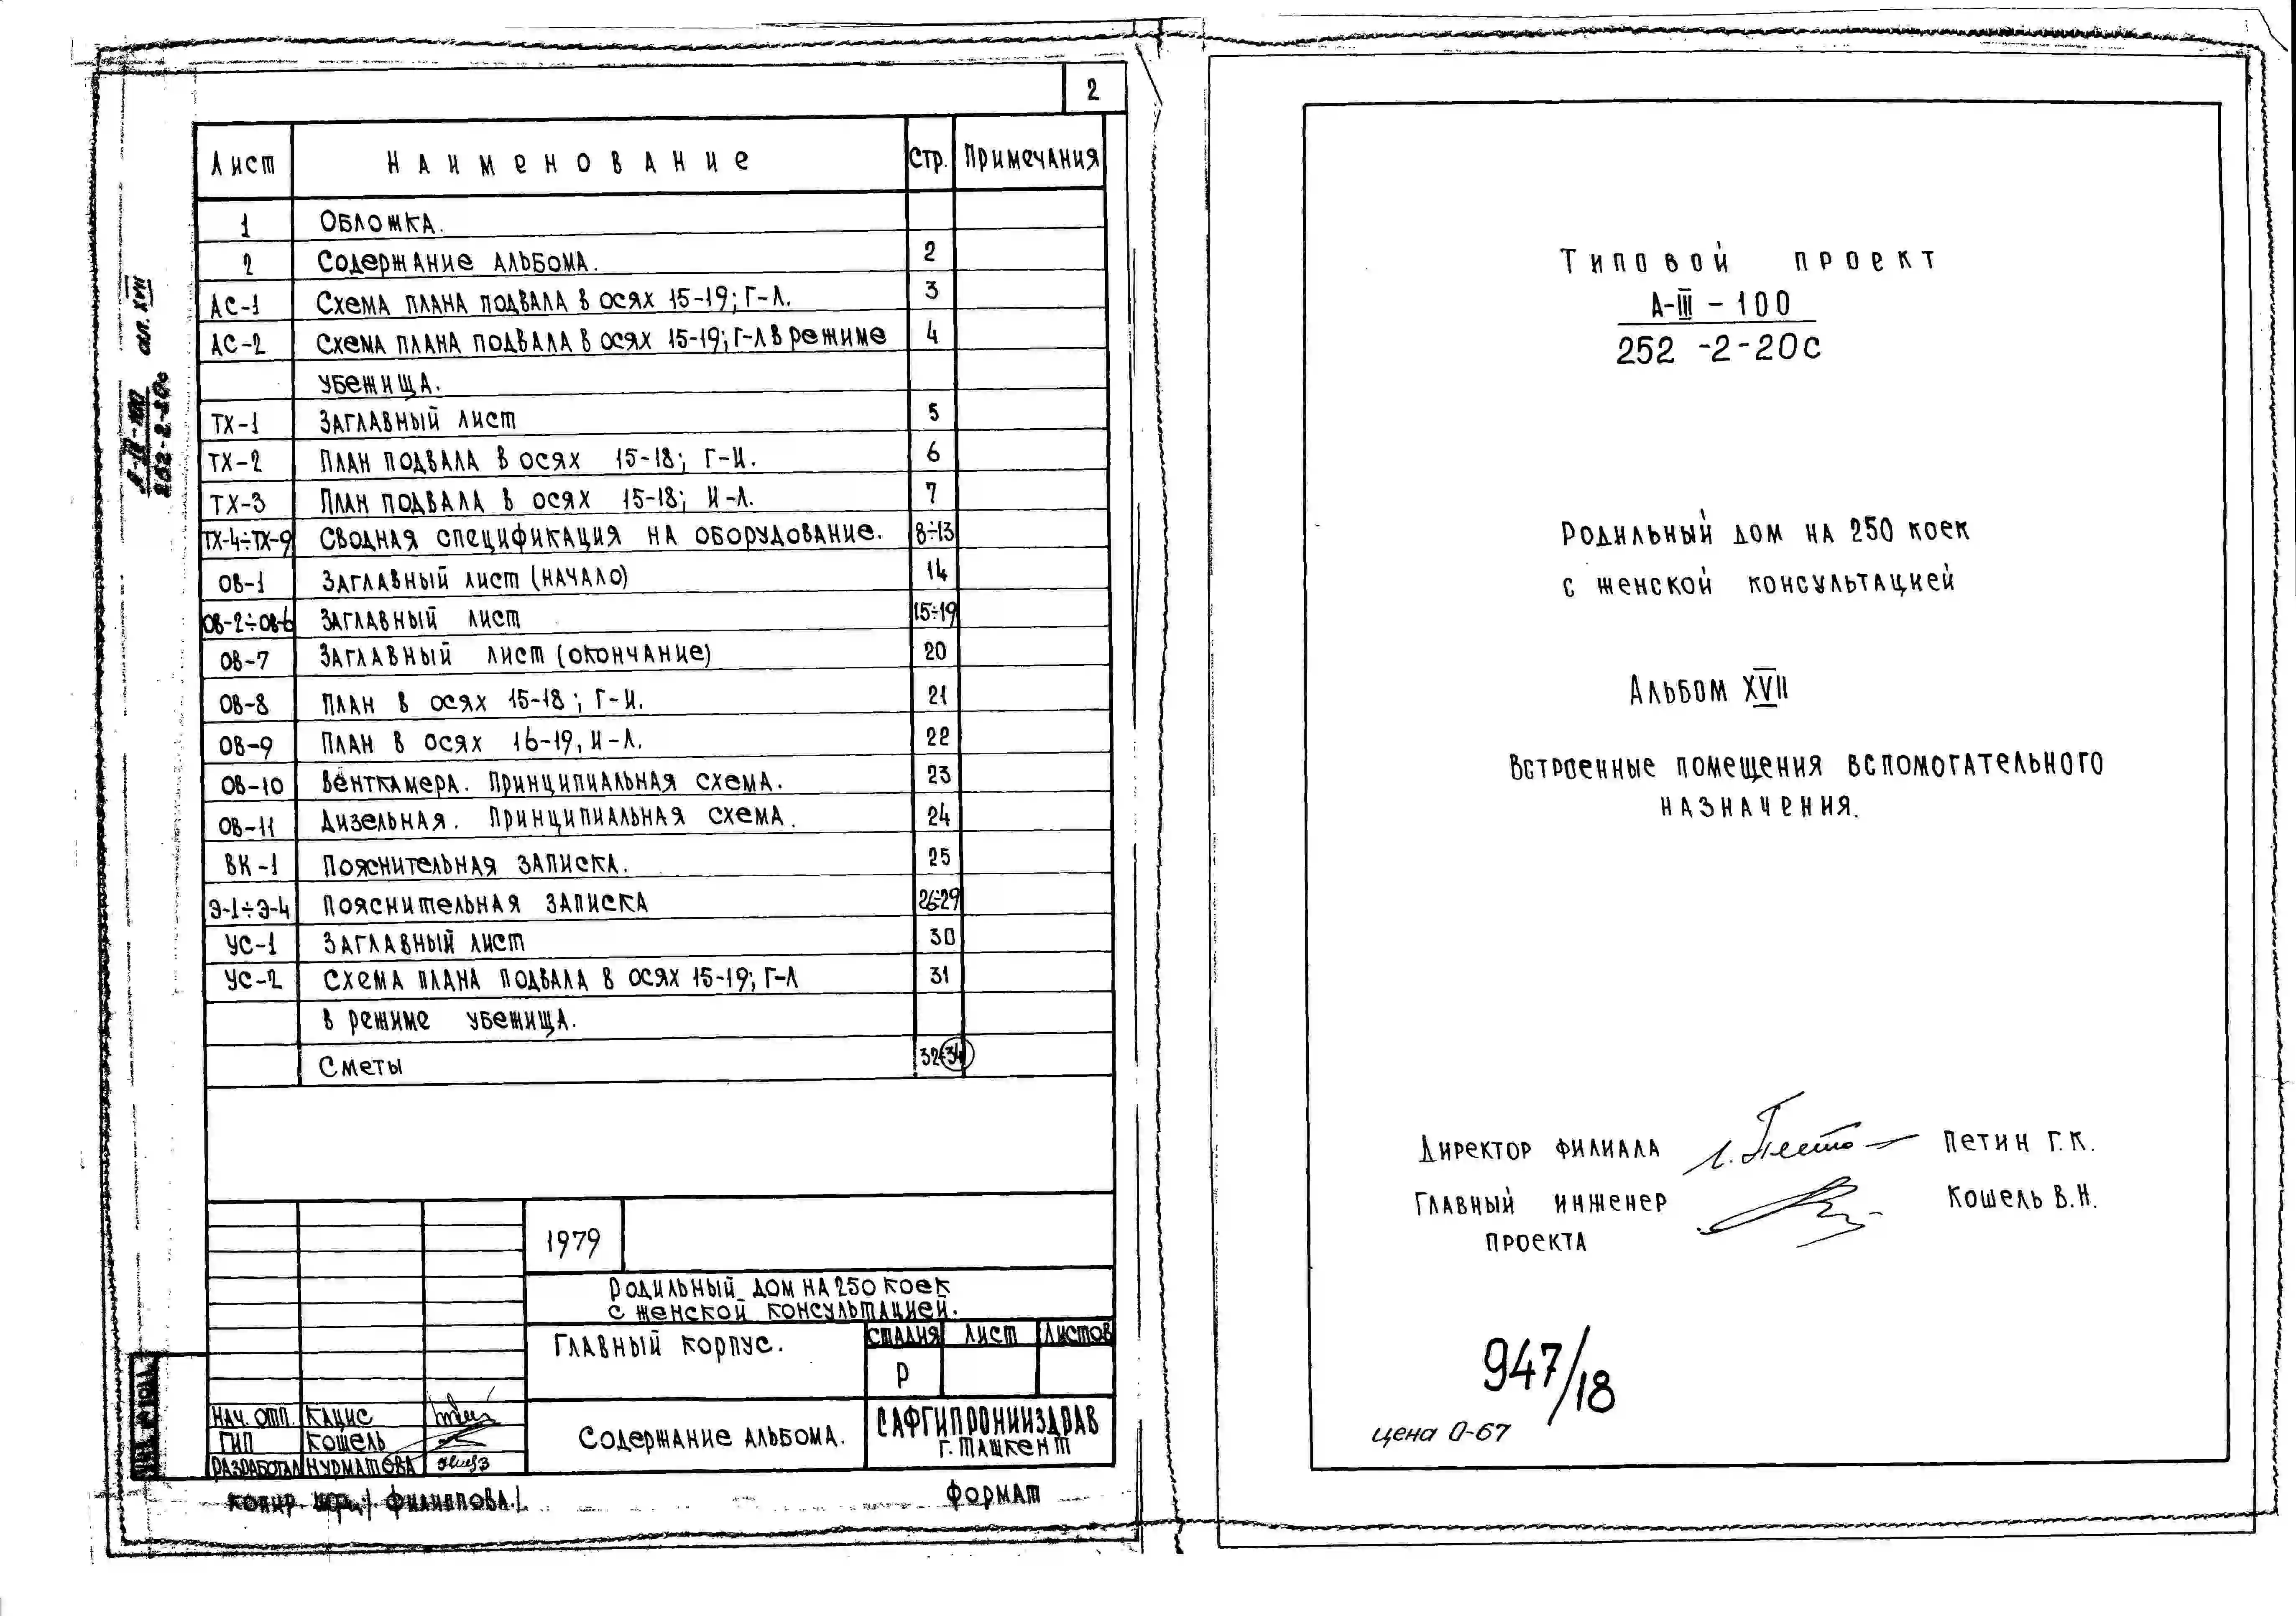 2
Лист Наименование Стр. Примечания
1 Обложка.
2 Содержание альбома. 2
АС-1 Схема плана подвала в осях 15-19; Г-Л. 3
АС-2 Схема плана подвала в осях 15-19; Г-Л в режиме 4
убежища.
ТХ-1 Заглавный лист 5
ТХ-2 План подвала в осях 15-18; Г-И. 6
ТХ-3 План подвала в осях 15-18; И-Л. 7
ТХ-4÷ТХ-9 Сводная спецификация на оборудование. 8÷13
ОВ-1 Заглавный лист (начало) 14
ОВ-2÷ОВ-6 Заглавный лист 15÷19
ОВ-7 Заглавный лист (окончание) 20
ОВ-8 План в осях 15-18; Г-И. 21
ОВ-9 План в осях 16-19, И-Л. 22
ОВ-10 Венткамера. Принципиальная схема. 23
ОВ-11 Дизельная. Принципиальная схема. 24
ВК-1 Пояснительная записка. 25
Э-1÷Э-4 Пояснительная записка 26÷29
УС-1 Заглавный лист 30
УС-2 Схема плана подвала в осях 15-19; Г-Л 31
в режиме убежища.
Сметы 32÷34
А-III-100
252-2-20с
ал. XVII
1979
Родильный дом на 250 коек
с женской консультацией.
Главный корпус.
Стадия Лист Листов
Р
Нач. отп. Кацис
ГИП Кошель
Разработал Нурматова
Содержание альбома.
САФГИПРОНИИЗДРАВ
г. Ташкент
Копир. Филиппова.
Формат
Типовой проект
А-III-100
252-2-20с
Родильный дом на 250 коек
с женской консультацией
Альбом XVII
Встроенные помещения вспомогательного
назначения.
Директор филиала Петин Г.К.
Главный инженер Кошель В.Н.
проекта
947/18
цена 0-67